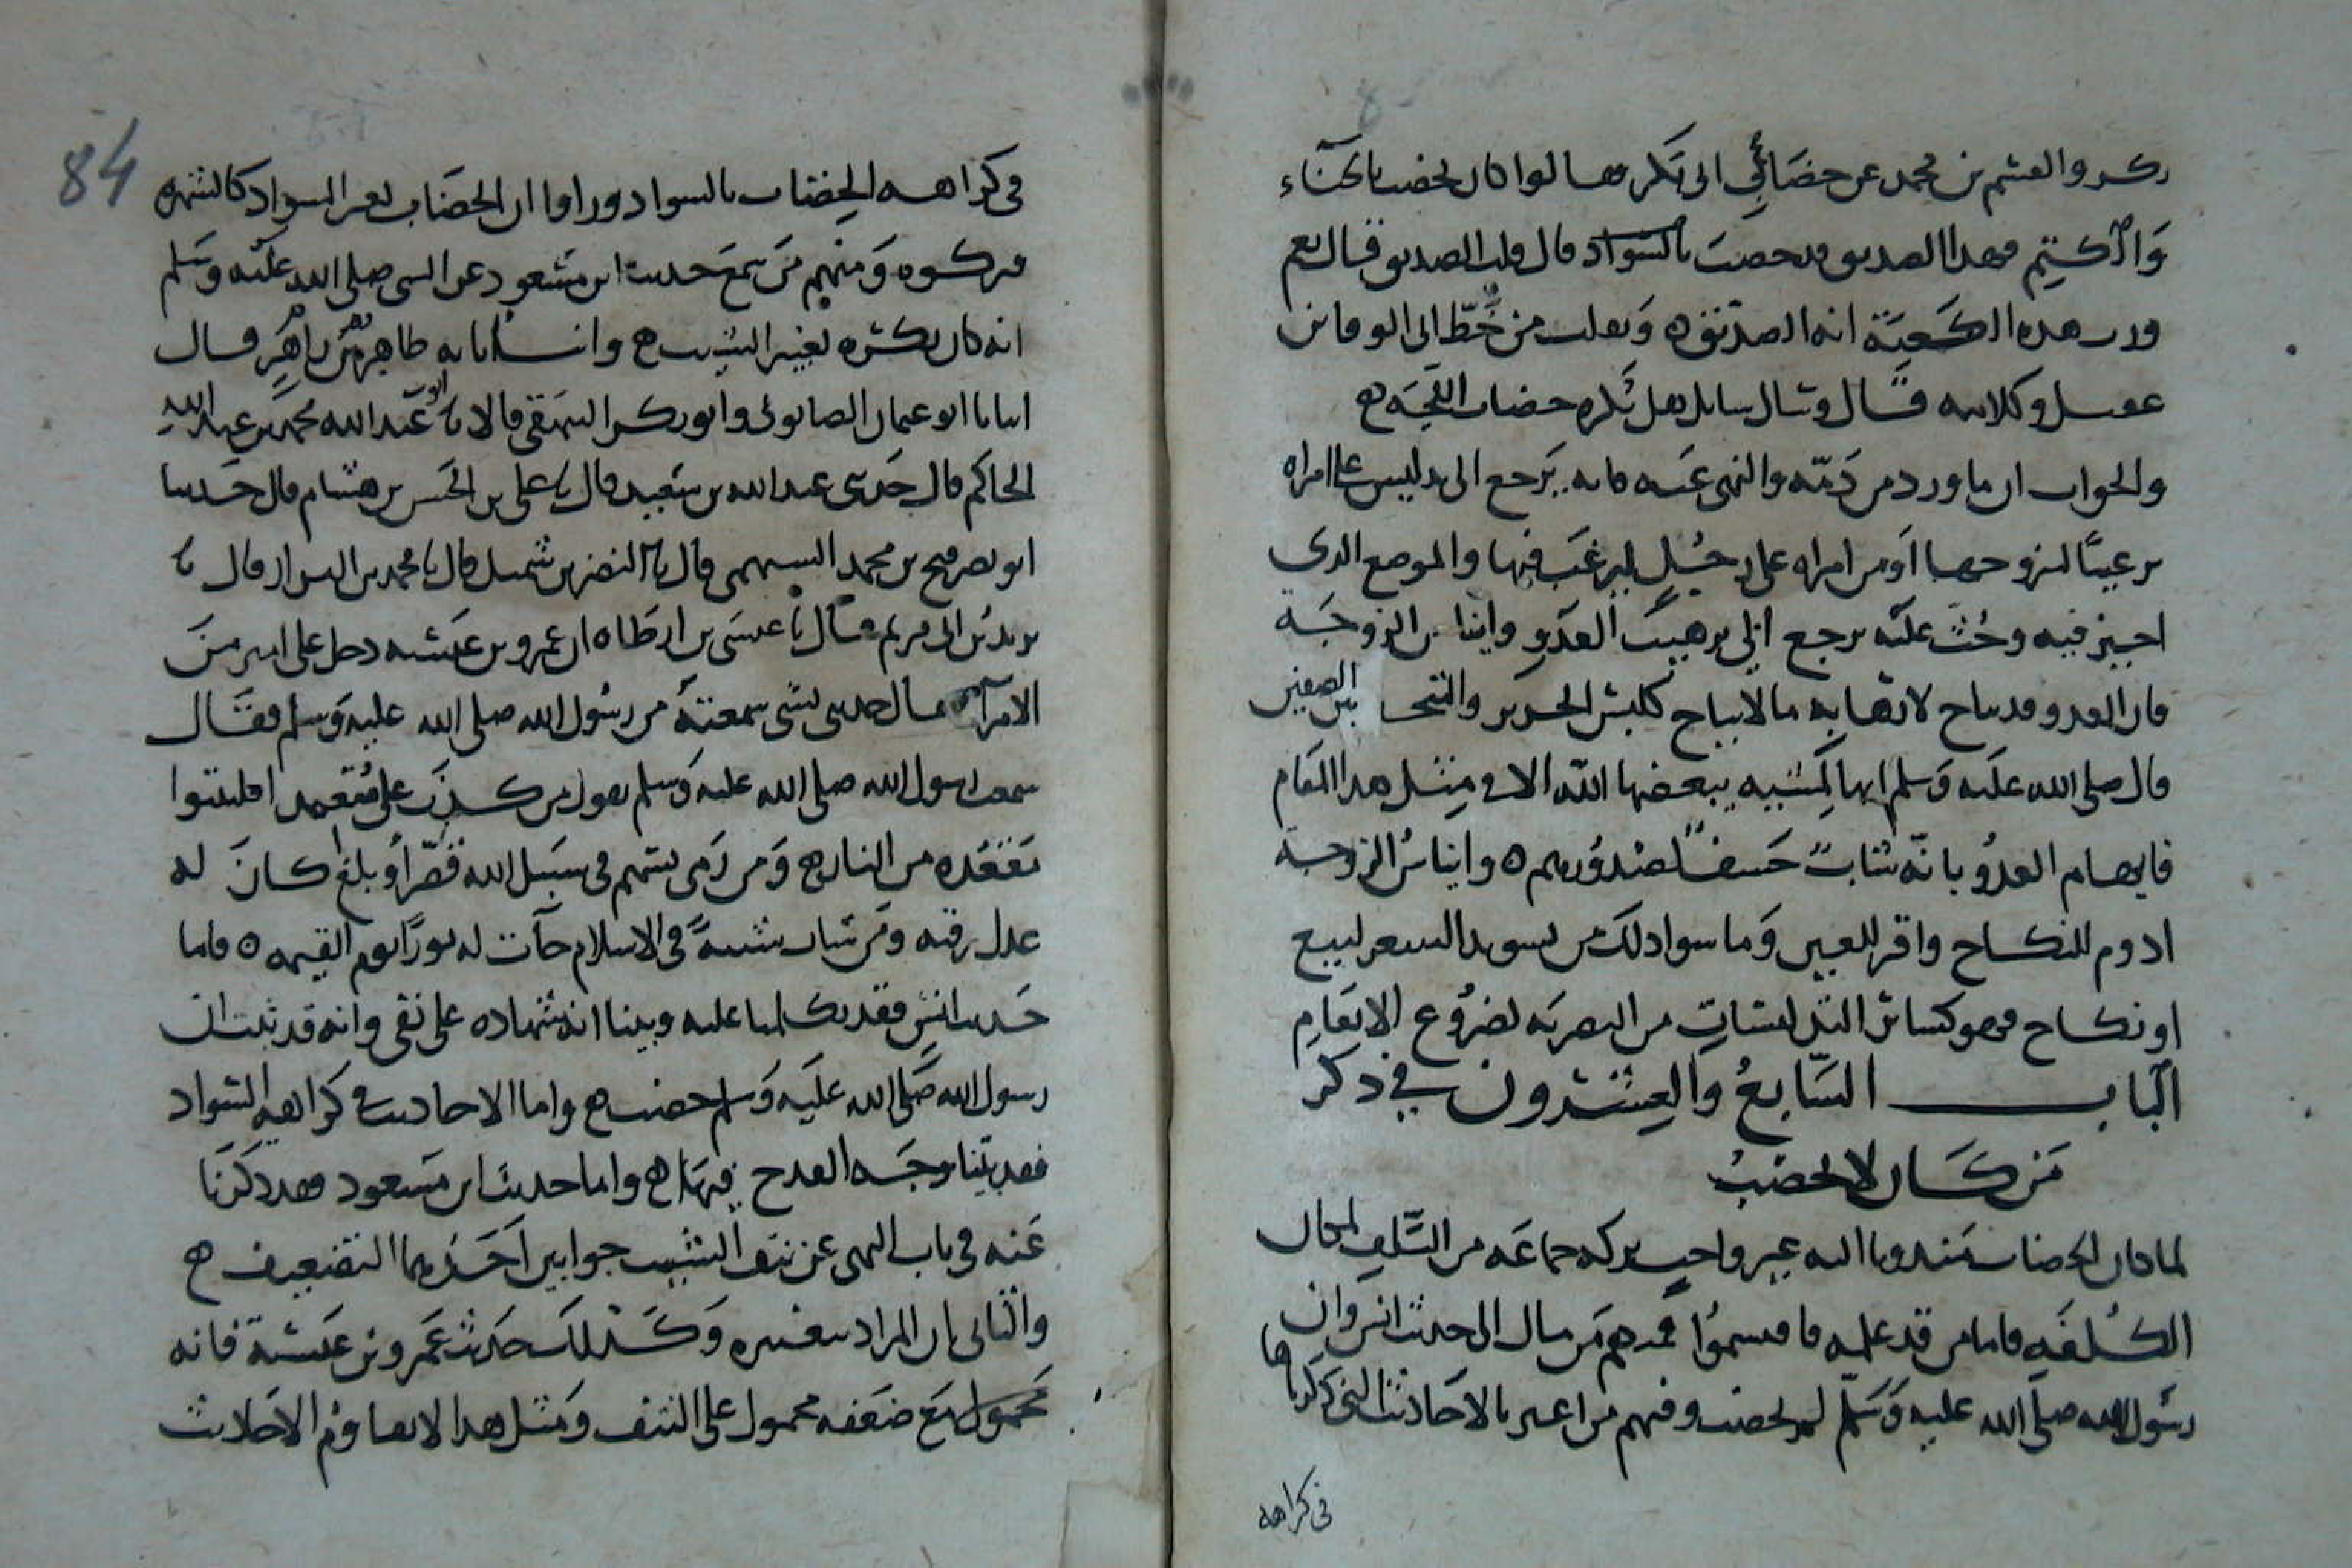 بكر والقسم بن محمد عن خضاب ابى بكر فقالوا كان يخضب بالحناء
والكتم فهذا الصديق قد خضب بالسواد قال قلت الصديق قال نعم
ورب هذه الكعبة انه الصديق ونقلت من خط ابى الوفا بن
عقيل وكلامه قال وسال سايل هل يكره خضاب اللحية
والجواب ان ما ورد من ذمه والنهى عنه فانه يرجع الى تدليس على امراه
ترغيبا لتزوجها او من امراه على رجل ليرغب فيها والموضع الذى
اجيز فيه وحث عليه يرجع الى ترهيب العدو وايناس الزوجة
فان العدو قد يباح لارهابه ما لا يباح كلبس الحرير والتبختر بين الصفين
قال صلى الله عليه وسلم انها لمشيه يبغضها الله الا فى مثل هذا المقام
فايهام العدو بانه شاب حسف لصدورهم وايناس الزوجة
ادوم للنكاح واقر للعين وما سوا ذلك من تسويد الشعر لبيع
او نكاح فهو كسائر التدليسات من التصريه لضروع الانعام
الباب السابع والعشرون فى ذكر
من كان لا يخضب
لما كان الخضاب مندوبا اليه غير واجب تركه جماعه من السلف لمحال
الكلفه فاما من قد علمه فانقسموا فمنهم من مال الى حديث انس وان
رسول الله صلى الله عليه وسلم لم يخضب وفيهم من اعتبر بالاحاديث التى ذكرناها
فى كراهه
84
فى كراهه الخضاب بالسواد وراوا ان الخضاب بغير السواد كالشهره
فتركوه ومنهم من سمع حديث ابن مسعود عن النبى صلى الله عليه وسلم
انه كان يكره تغيير الشيب وانبانا به طاهر بن طاهر قال
انبانا ابو عثمان الصابونى وابو بكر البيهقى قالا نا ابو عبد الله محمد بن عبد الله
الحاكم قال حدثنى عبد الله بن سعيد قال نا على بن الحسن بن هشام قال حدثنا
ابو نصر فتح بن محمد السهمى قال نا النضر بن شميل قال نا محمد بن البراز قال نا
يزيد بن ابى مريم قال نا عيسى بن ارطاه ان عمرو بن عبسه دخل على امير من
الامرآء فقال حدثنى بشى سمعته من رسول الله صلى الله عليه وسلم فقال
سمعت رسول الله صلى الله عليه وسلم يقول من كذب على متعمدا فليتبوا
مقعده من النار ومن رمى بسهم فى سبيل الله قصر او بلغ كان له
عدل رقبه ومن شاب شيبة فى الاسلام جآت له نورا يوم القيمه فاما
حديث انس فقد تكلمنا عليه وبينا انه شهاده على نفى وانه قد ثبت ان
رسول الله صلى الله عليه وسلم خضب واما الاحاديث فى كراهه السواد
فقد بينا وجه القدح فيها واما حديث ابن مسعود فقد ذكرنا
عنه فى باب النهى عن نتف الشيب جوابين احدهما التضعيف
والثانى بان المراد بتغييره وكذلك حديث عمرو بن عبسة فانه
محمول مع ضعفه محمول على النتف ومثل هذا لا يقاوم الاحاديث